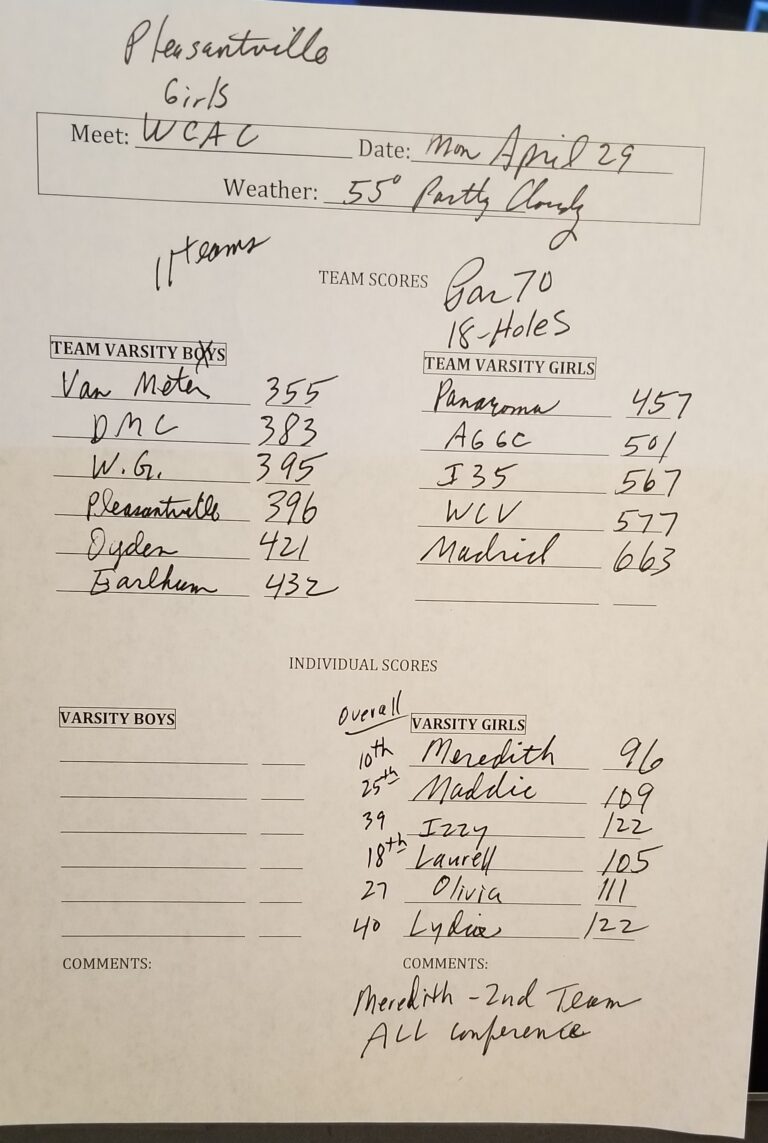 Pleasantville
Girls
Meet: WCAC Date: Mon April 29
Weather: 55° Partly Cloudy
11 teams
TEAM SCORES Par 70
18-Holes
TEAM VARSITY BOYS
Van Meter 355
DMC 383
W.G. 395
Pleasantville 396
Ogden 421
Earlham 432
TEAM VARSITY GIRLS
Panaroma 457
AGGC 501
I35 567
WCV 577
Madrid 663
INDIVIDUAL SCORES
VARSITY BOYS
Overall VARSITY GIRLS
10th Meredith 96
25th Maddie 109
39 Izzy 122
18th Laurell 105
27 Olivia 111
40 Lydia 122
COMMENTS:
COMMENTS:
Meredith - 2nd Team
ALL Conference